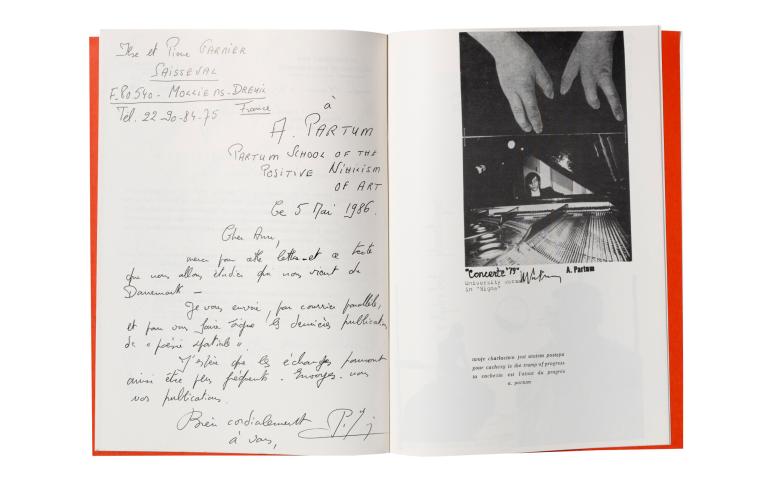 Ilse et Pierre GARNIER
SAISSEVAL
F.80540 - MOLLIENS-DREUIL
France
Tél. 22-90-84-75
à
A. PARTUM
PARTUM SCHOOL OF THE
POSITIVE NIHILISM
OF ART
Le 5 Mai 1986.
Cher Ami,
merci pour cette lettre et ce texte
que nous allons étudier qui nous vient du
Danemark -
Je vous envoie, par courrier parallèle,
et pour vous faire signe, les dernières publications
de "poésie spatiale".
J'espère que les échanges pourront
ainsi être plus fréquents. Envoyez-nous
vos publications.
Bien cordialement
à vous,
"Concerte "79"
A. Partum
University
in "Nigna"
moje charłactwo jest atutem postępu
your cachexy is the trump of progress
ta cachexie est l'atout du progrès
a. partum